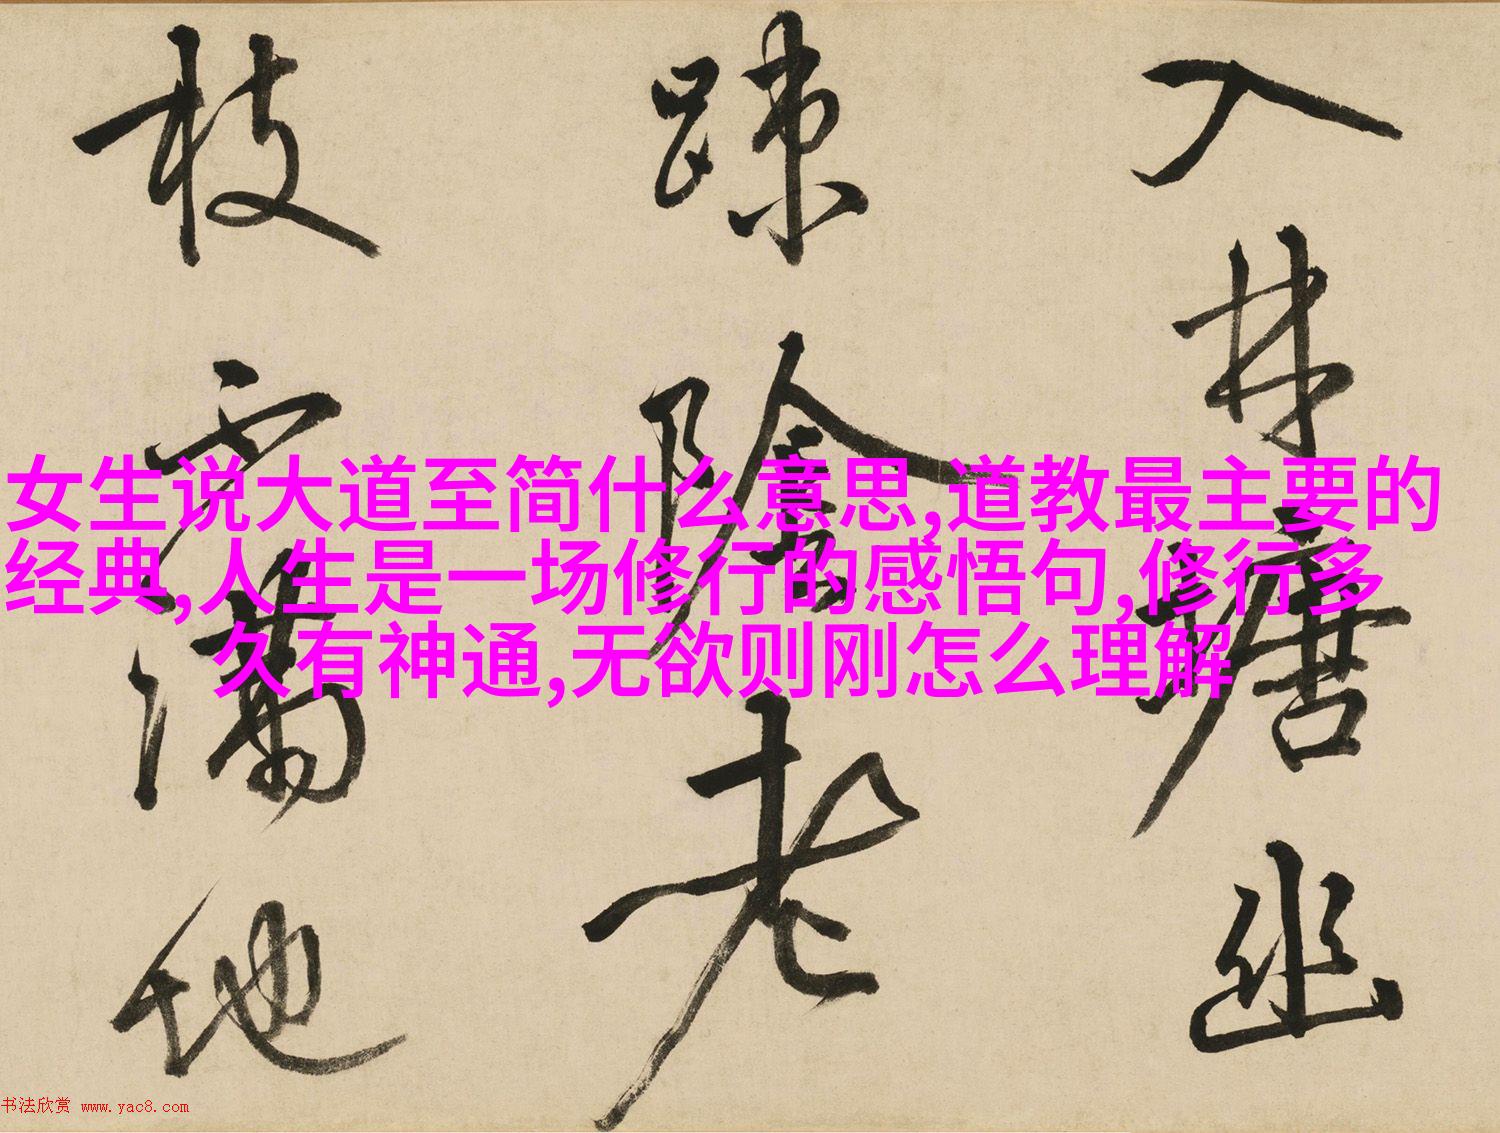 入林塘幽
踈陰老
枝滿地
女生说大道至简什么意思,道教最主要的
经典,人生是一场修行的感悟句,修行多
久有神通,无欲则刚怎么理解
书法欣赏 www.yac8.com